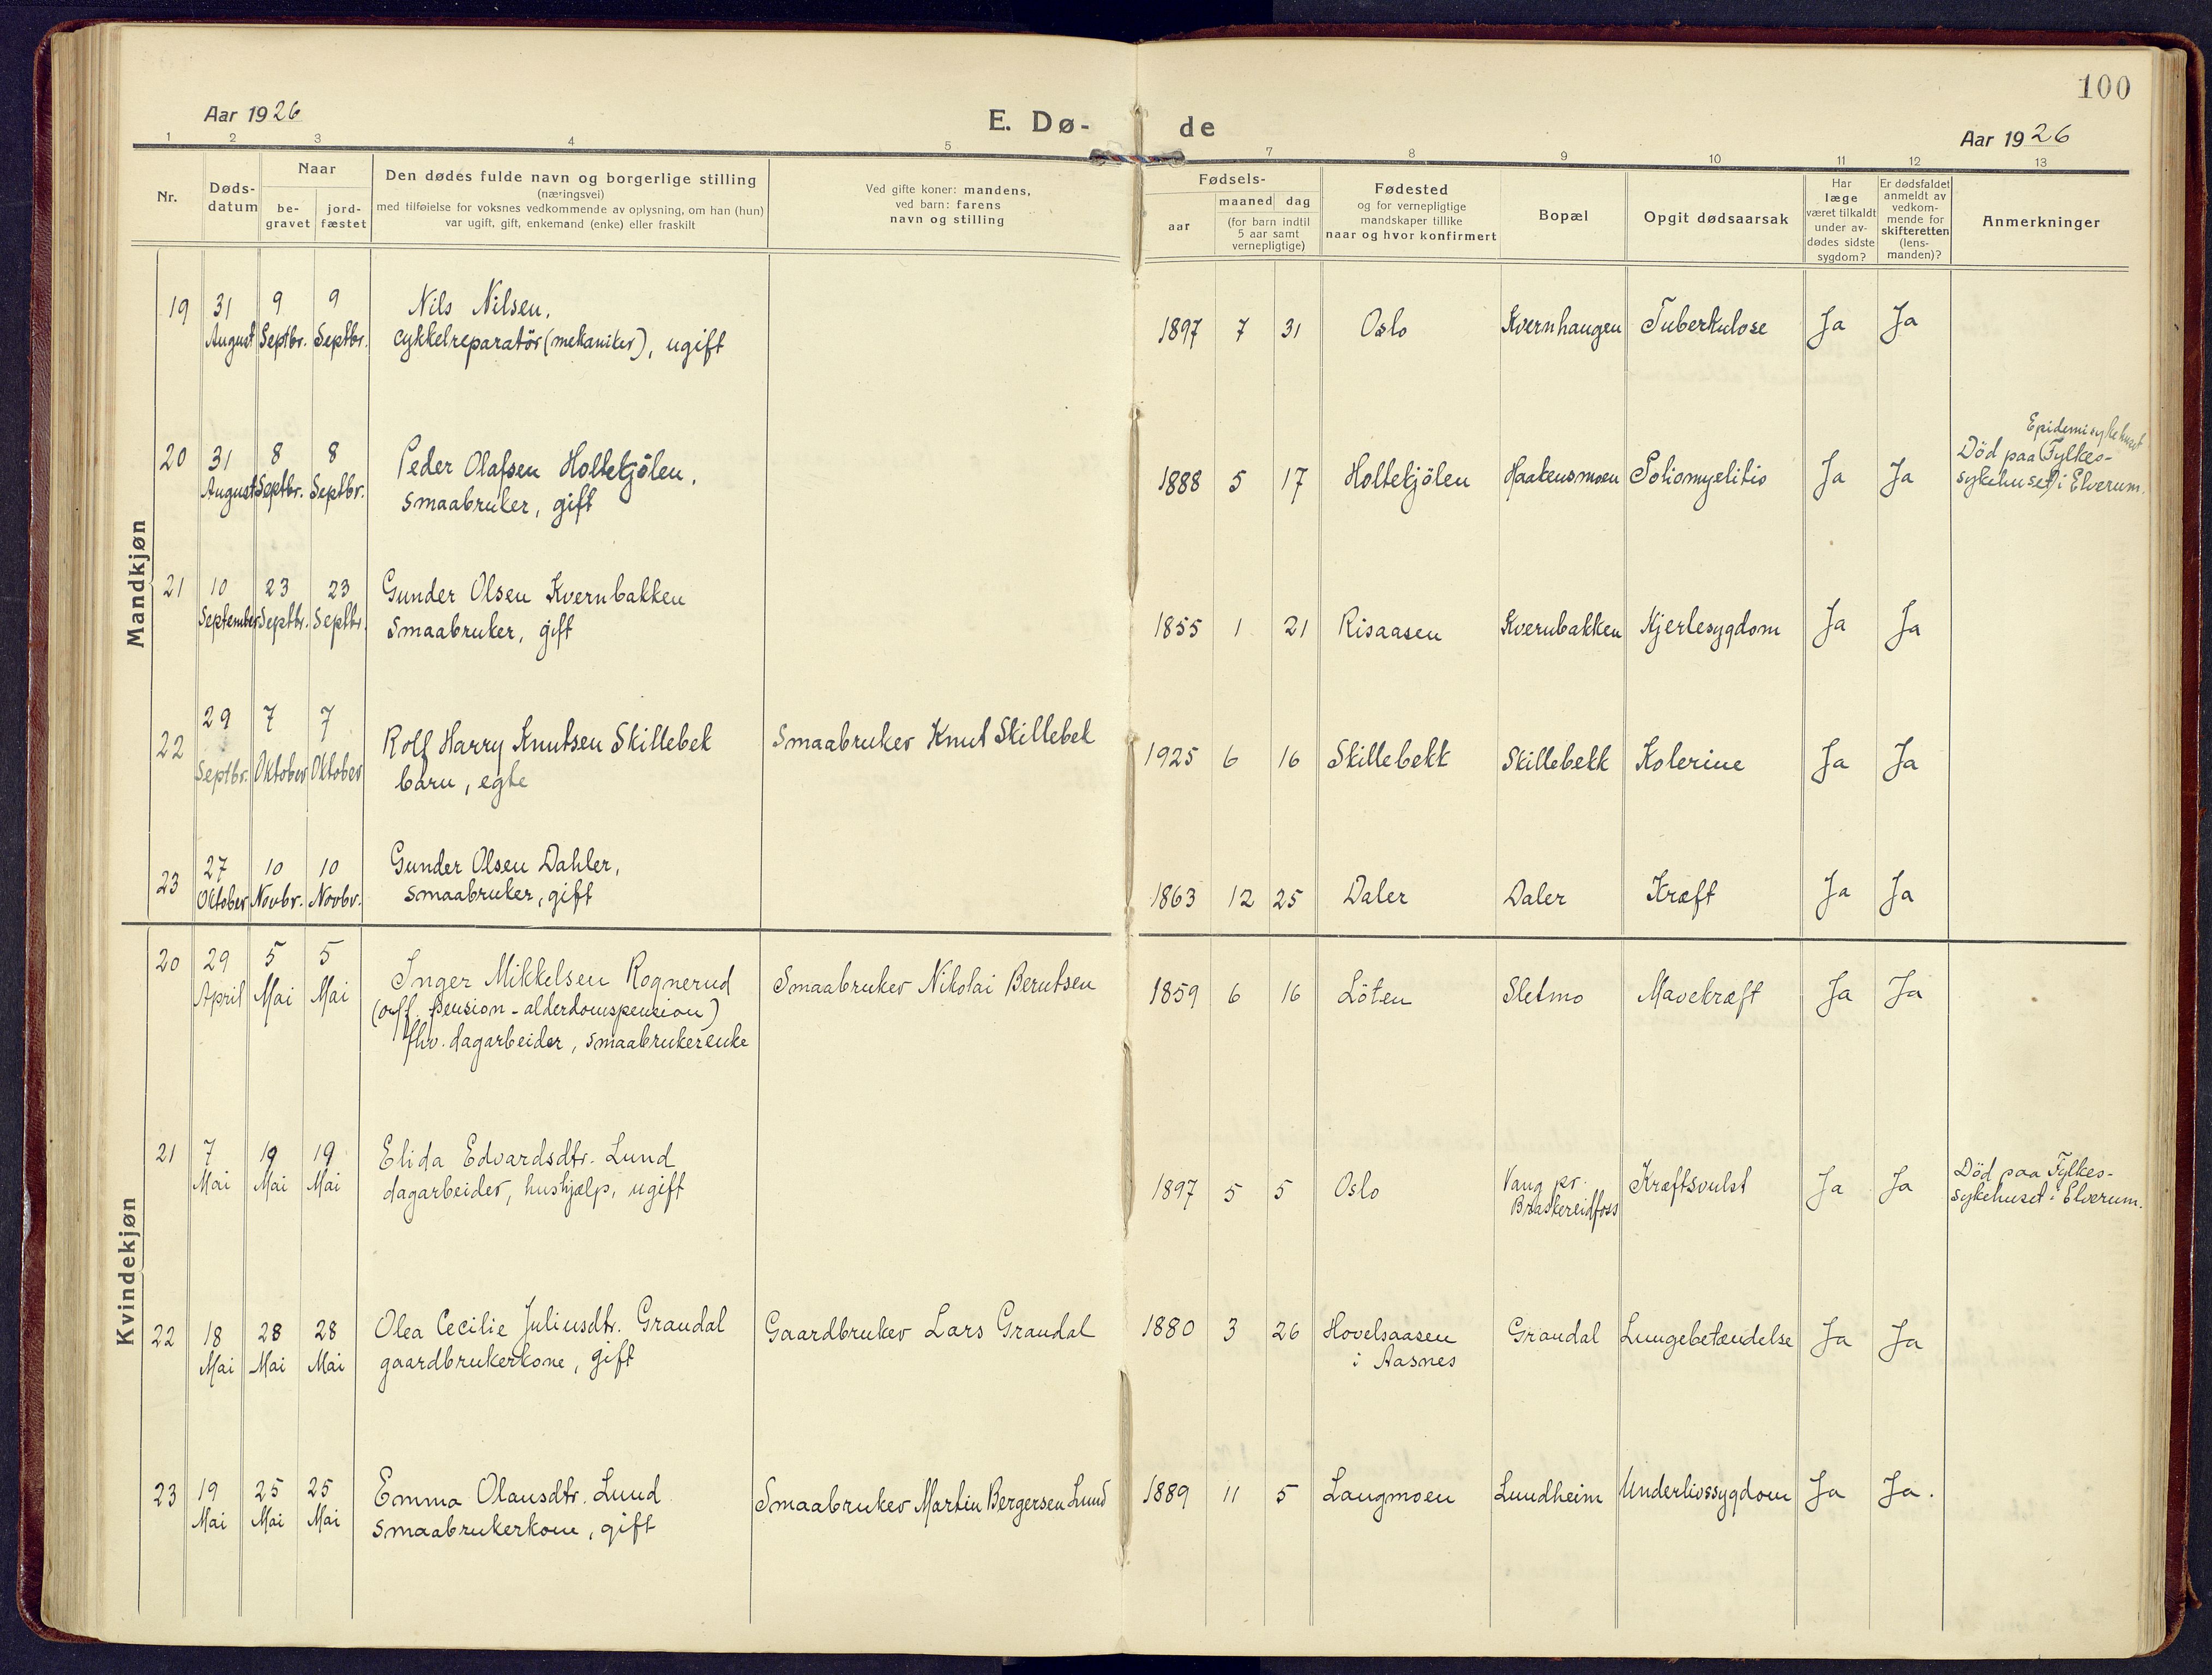 100
Aar 1926
E. Dø-
de
Aar 1926
1 2 3 4 5 7 8 9 10 11 12 13
Nr.
Døds-
datum
Naar
be-
gravet
jord-
fæstet
Den dødes fulde navn og borgerlige stilling
(næringsvei)
med tilføielse for voksnes vedkommende av oplysning, om han (hun)
var ugift, gift, enkemand (enke) eller fraskilt
Ved gifte koner: mandens,
ved barn: farens
navn og stilling
Fødsels-
aar
maaned dag
(for barn indtil
5 aar samt
vernepligtige)
Fødested
og for vernepligtige
mandskaper tillike
naar og hvor konfirmert
Bopæl
Opgit dødsaarsak
Har
læge
været tilkaldt
under av-
dødes sidste
sygdom?
Er dødsfaldet
anmeldt av
vedkom-
mende for
skifteretten
(lens-
manden)?
Anmerkninger
Mandkjøn
19 31 9 9 Nils Nilsen,
August Septbr. Septbr. cykkelreparatör (mekaniker), ugift
1897 7 31 Oslo Kvernhaugen Tuberkulose Ja Ja
20 31 8 8 Peder Olafsen Holtekjölen,
August Septbr. Septbr. smaabruker, gift
1888 5 17 Holtekjölen Haakensmoen Poliomyelitis Ja Ja
Epidemisykehuset
Död paa (Fylkes-
sykehuset) i Elverum.
21 10 23 23 Gunder Olsen Kvernbakken
September Septbr. Septbr. smaabruker, gift
1855 1 21 Risaasen Kvernbakken Hjertesygdom Ja Ja
22 29 7 7 Rolf Harry Knutsen Skillebek Smaabruker Knut Skillebek
Septbr. Oktober Oktober barn, egte
1925 6 16 Skillebekk Skillebekk Kolerine Ja Ja
23 27 10 10 Gunder Olsen Dahler,
Oktober Novbr. Novbr. smaabruker, gift
1863 12 25 Daler Daler Kræft Ja Ja
Kvindekjøn
20 29 5 5 Inger Mikkelsen Rognerud Smaabruker Nikolai Berntsen
April Mai Mai (off. pension - alderdomspension)
fhv. dagarbeider, smaabrukerenke
1859 6 16 Löten Sletmo Mavekræft Ja Ja
21 7 19 19 Elida Edvardsdtr. Lund
Mai Mai Mai dagarbeider, hushjælp, ugift
1897 5 5 Oslo Vang pr. Kræftsvulst Ja Ja
Braskereidfoss
Död paa Fylkes-
sykehuset i Elverum.
22 18 28 28 Olea Cecilie Juliusdtr. Grandal Gaardbruker Lars Grandal
Mai Mai Mai gaardbrukerkone, gift
1880 3 26 Hovelsaasen Grandal Lungebetændelse Ja Ja
i Aasnes
23 19 25 25 Emma Olausdtr. Lund Smaabruker Martin Bergersen Lund
Mai Mai Mai smaabrukerkone, gift
1889 11 5 Langmoen Lundheim Underlivssygdom Ja Ja.